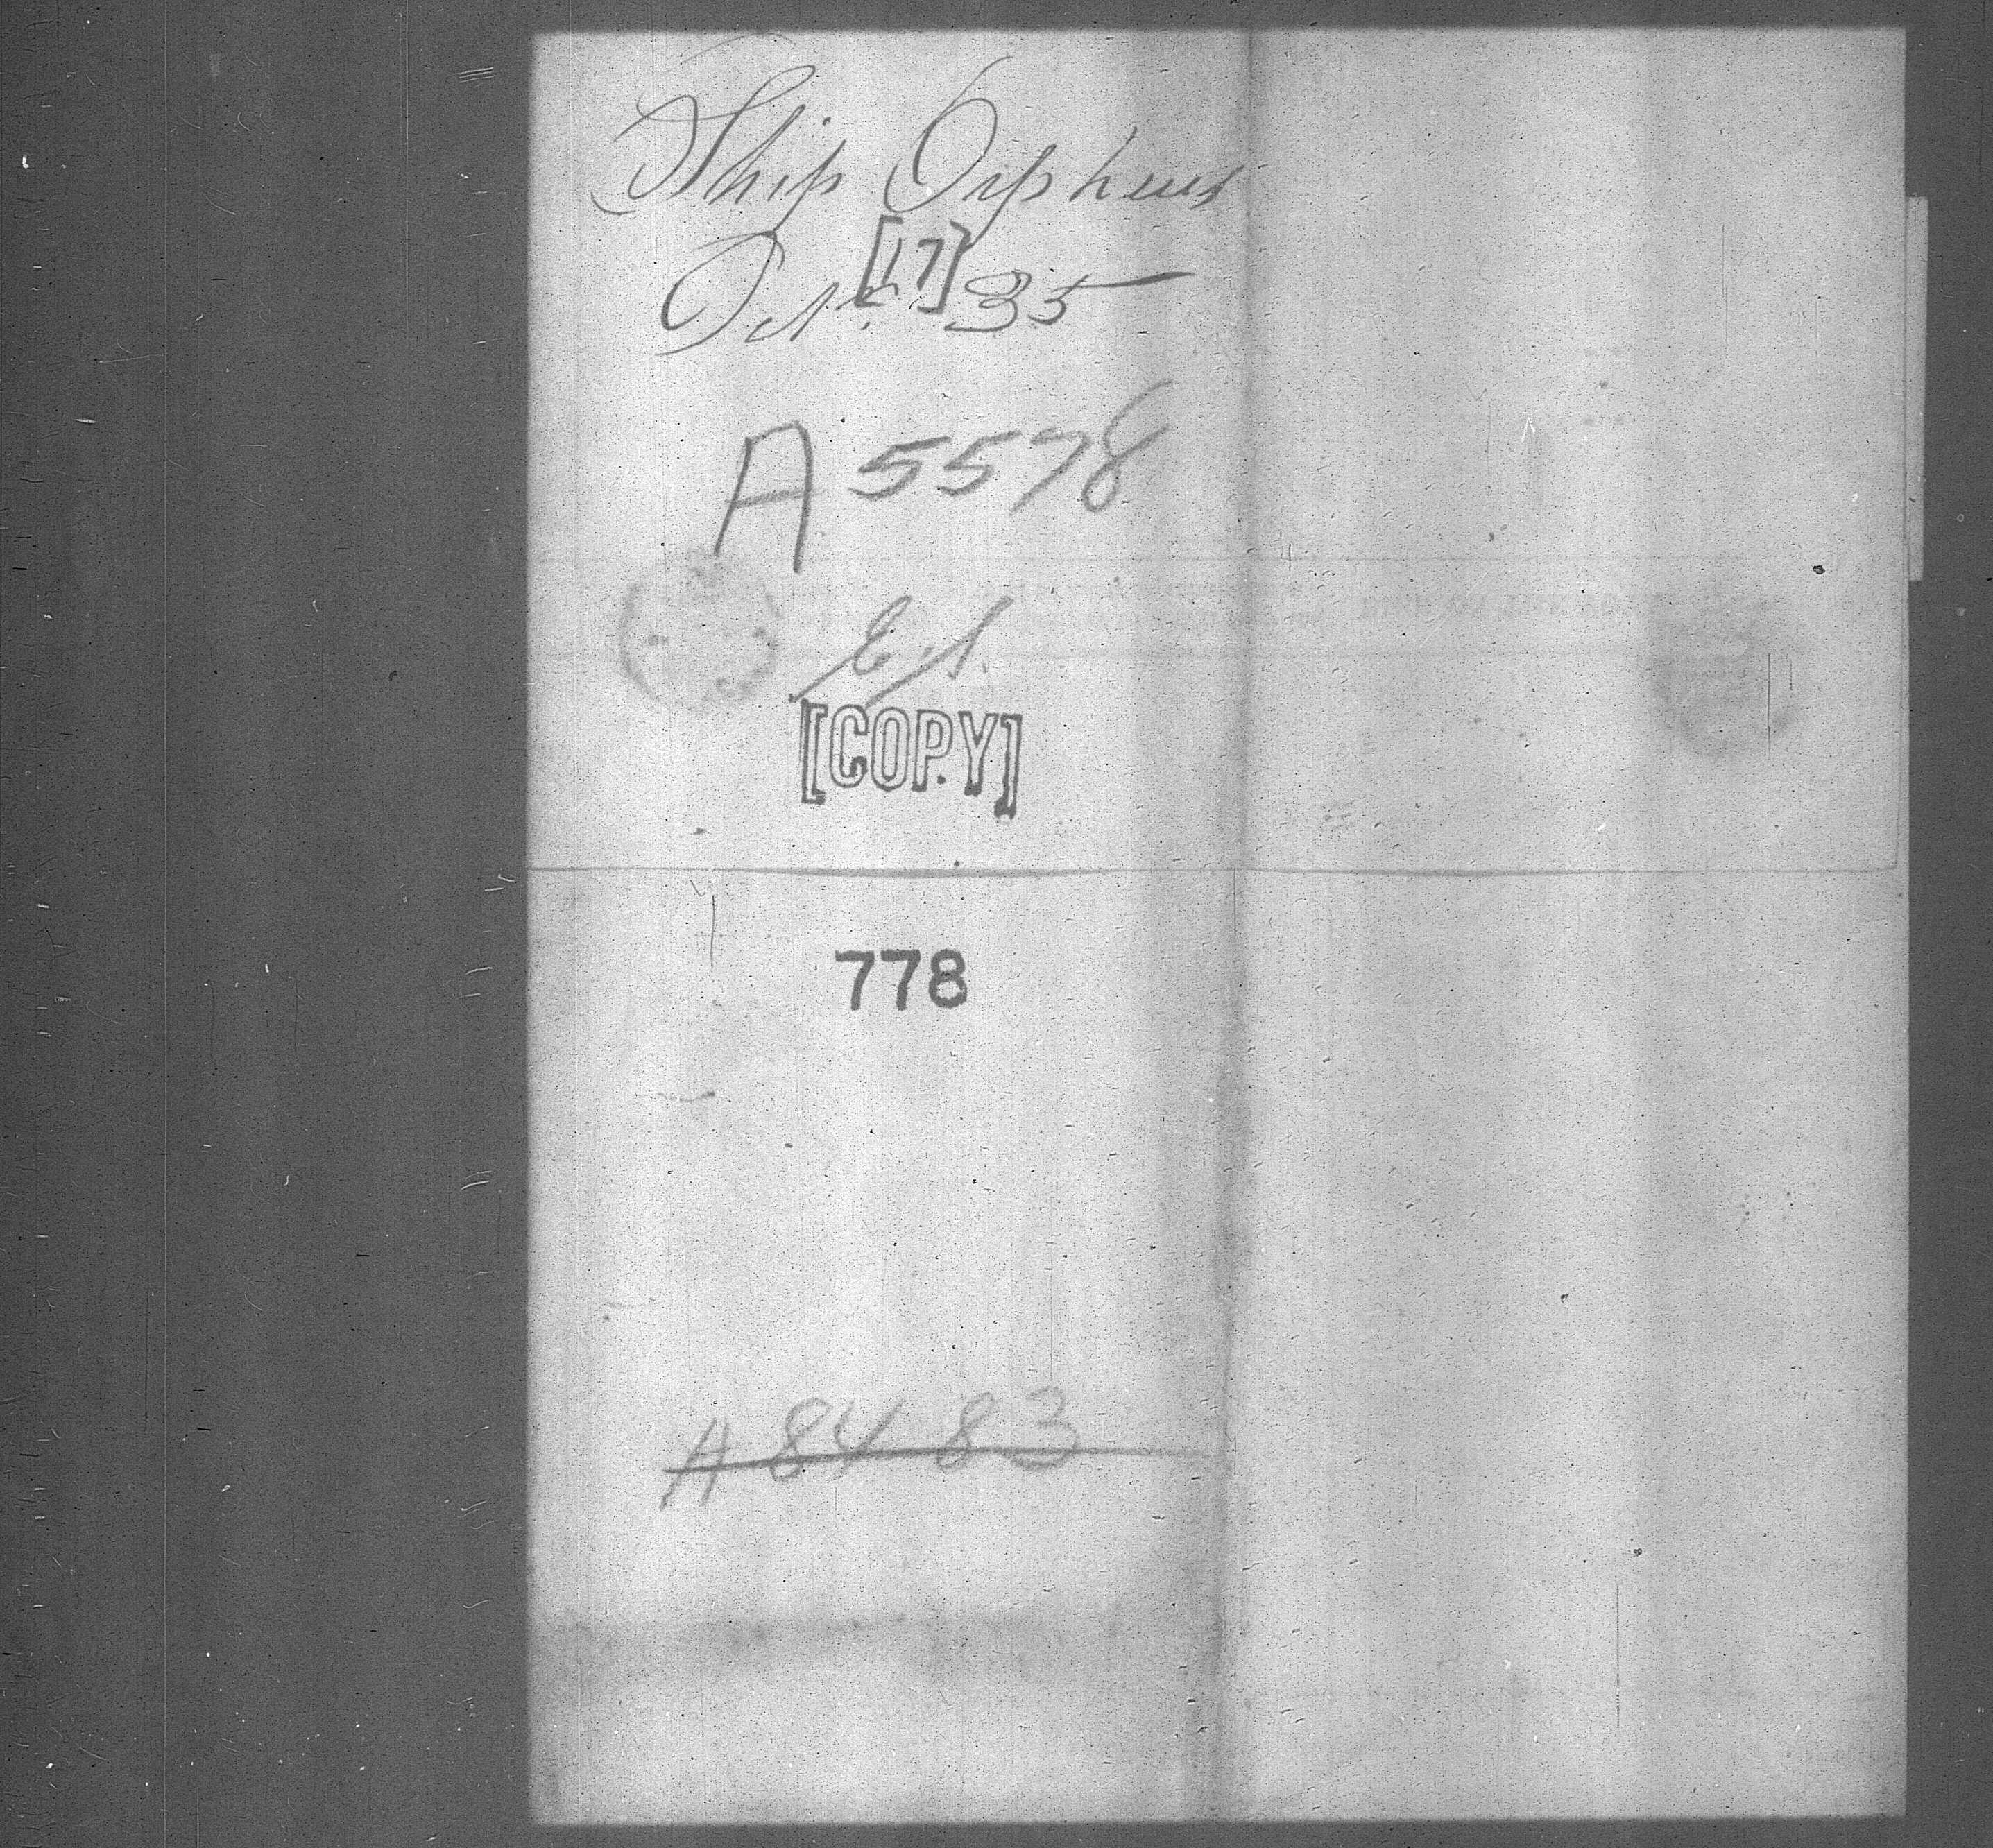 Ship Orpheus
Oct. [17] 35
A 5578
[COPY]
778
A 8483